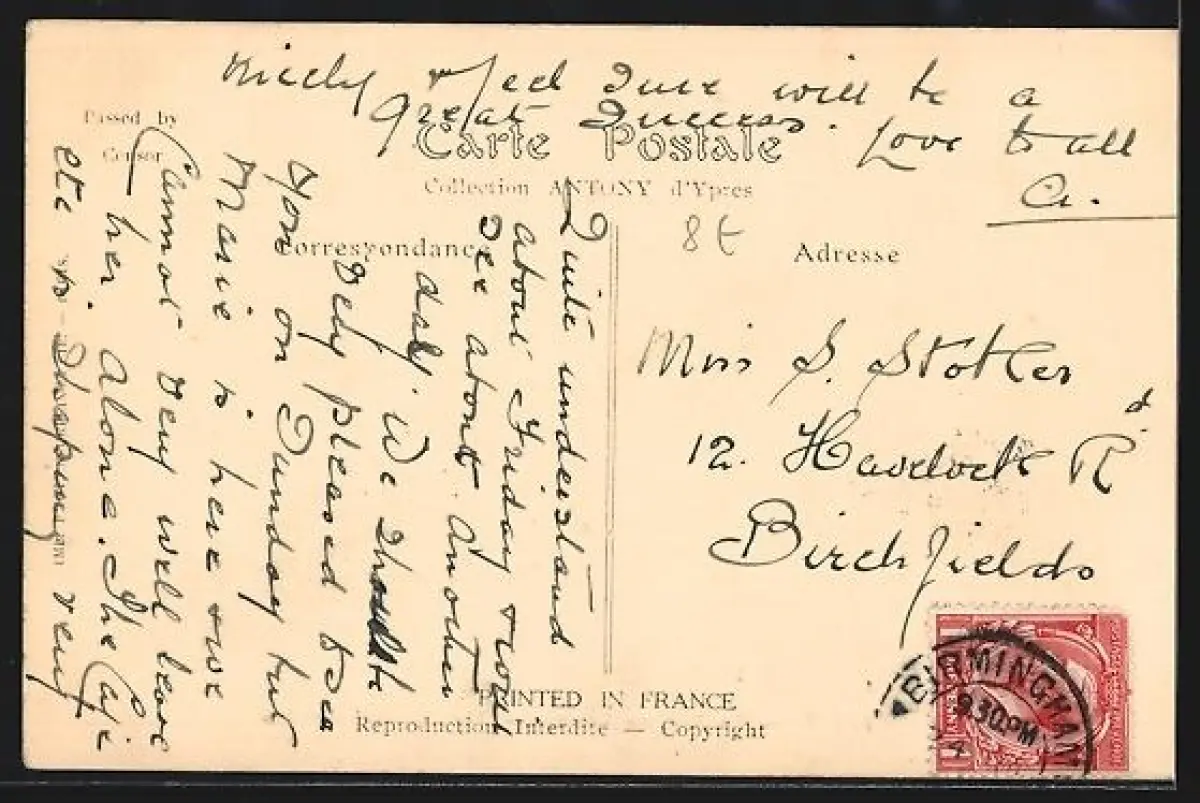 nicely & feel sure will be a
great success. Love to all
A.
Passed by
Censor
Carte Postale
Collection ANTONY d'Ypres
Correspondance
Adresse
8t
Quite understand
about Friday
see about another
day. We should
very pleased to see
you on Sunday but
Marie is here & we
cannot very well leave
her alone. The Cafe
etc is shaping very
Miss S. Stokes
12. Havelock Rd
Birchfields
BIRMINGHAM
9.30 PM
PRINTED IN FRANCE
Reproduction Interdite — Copyright